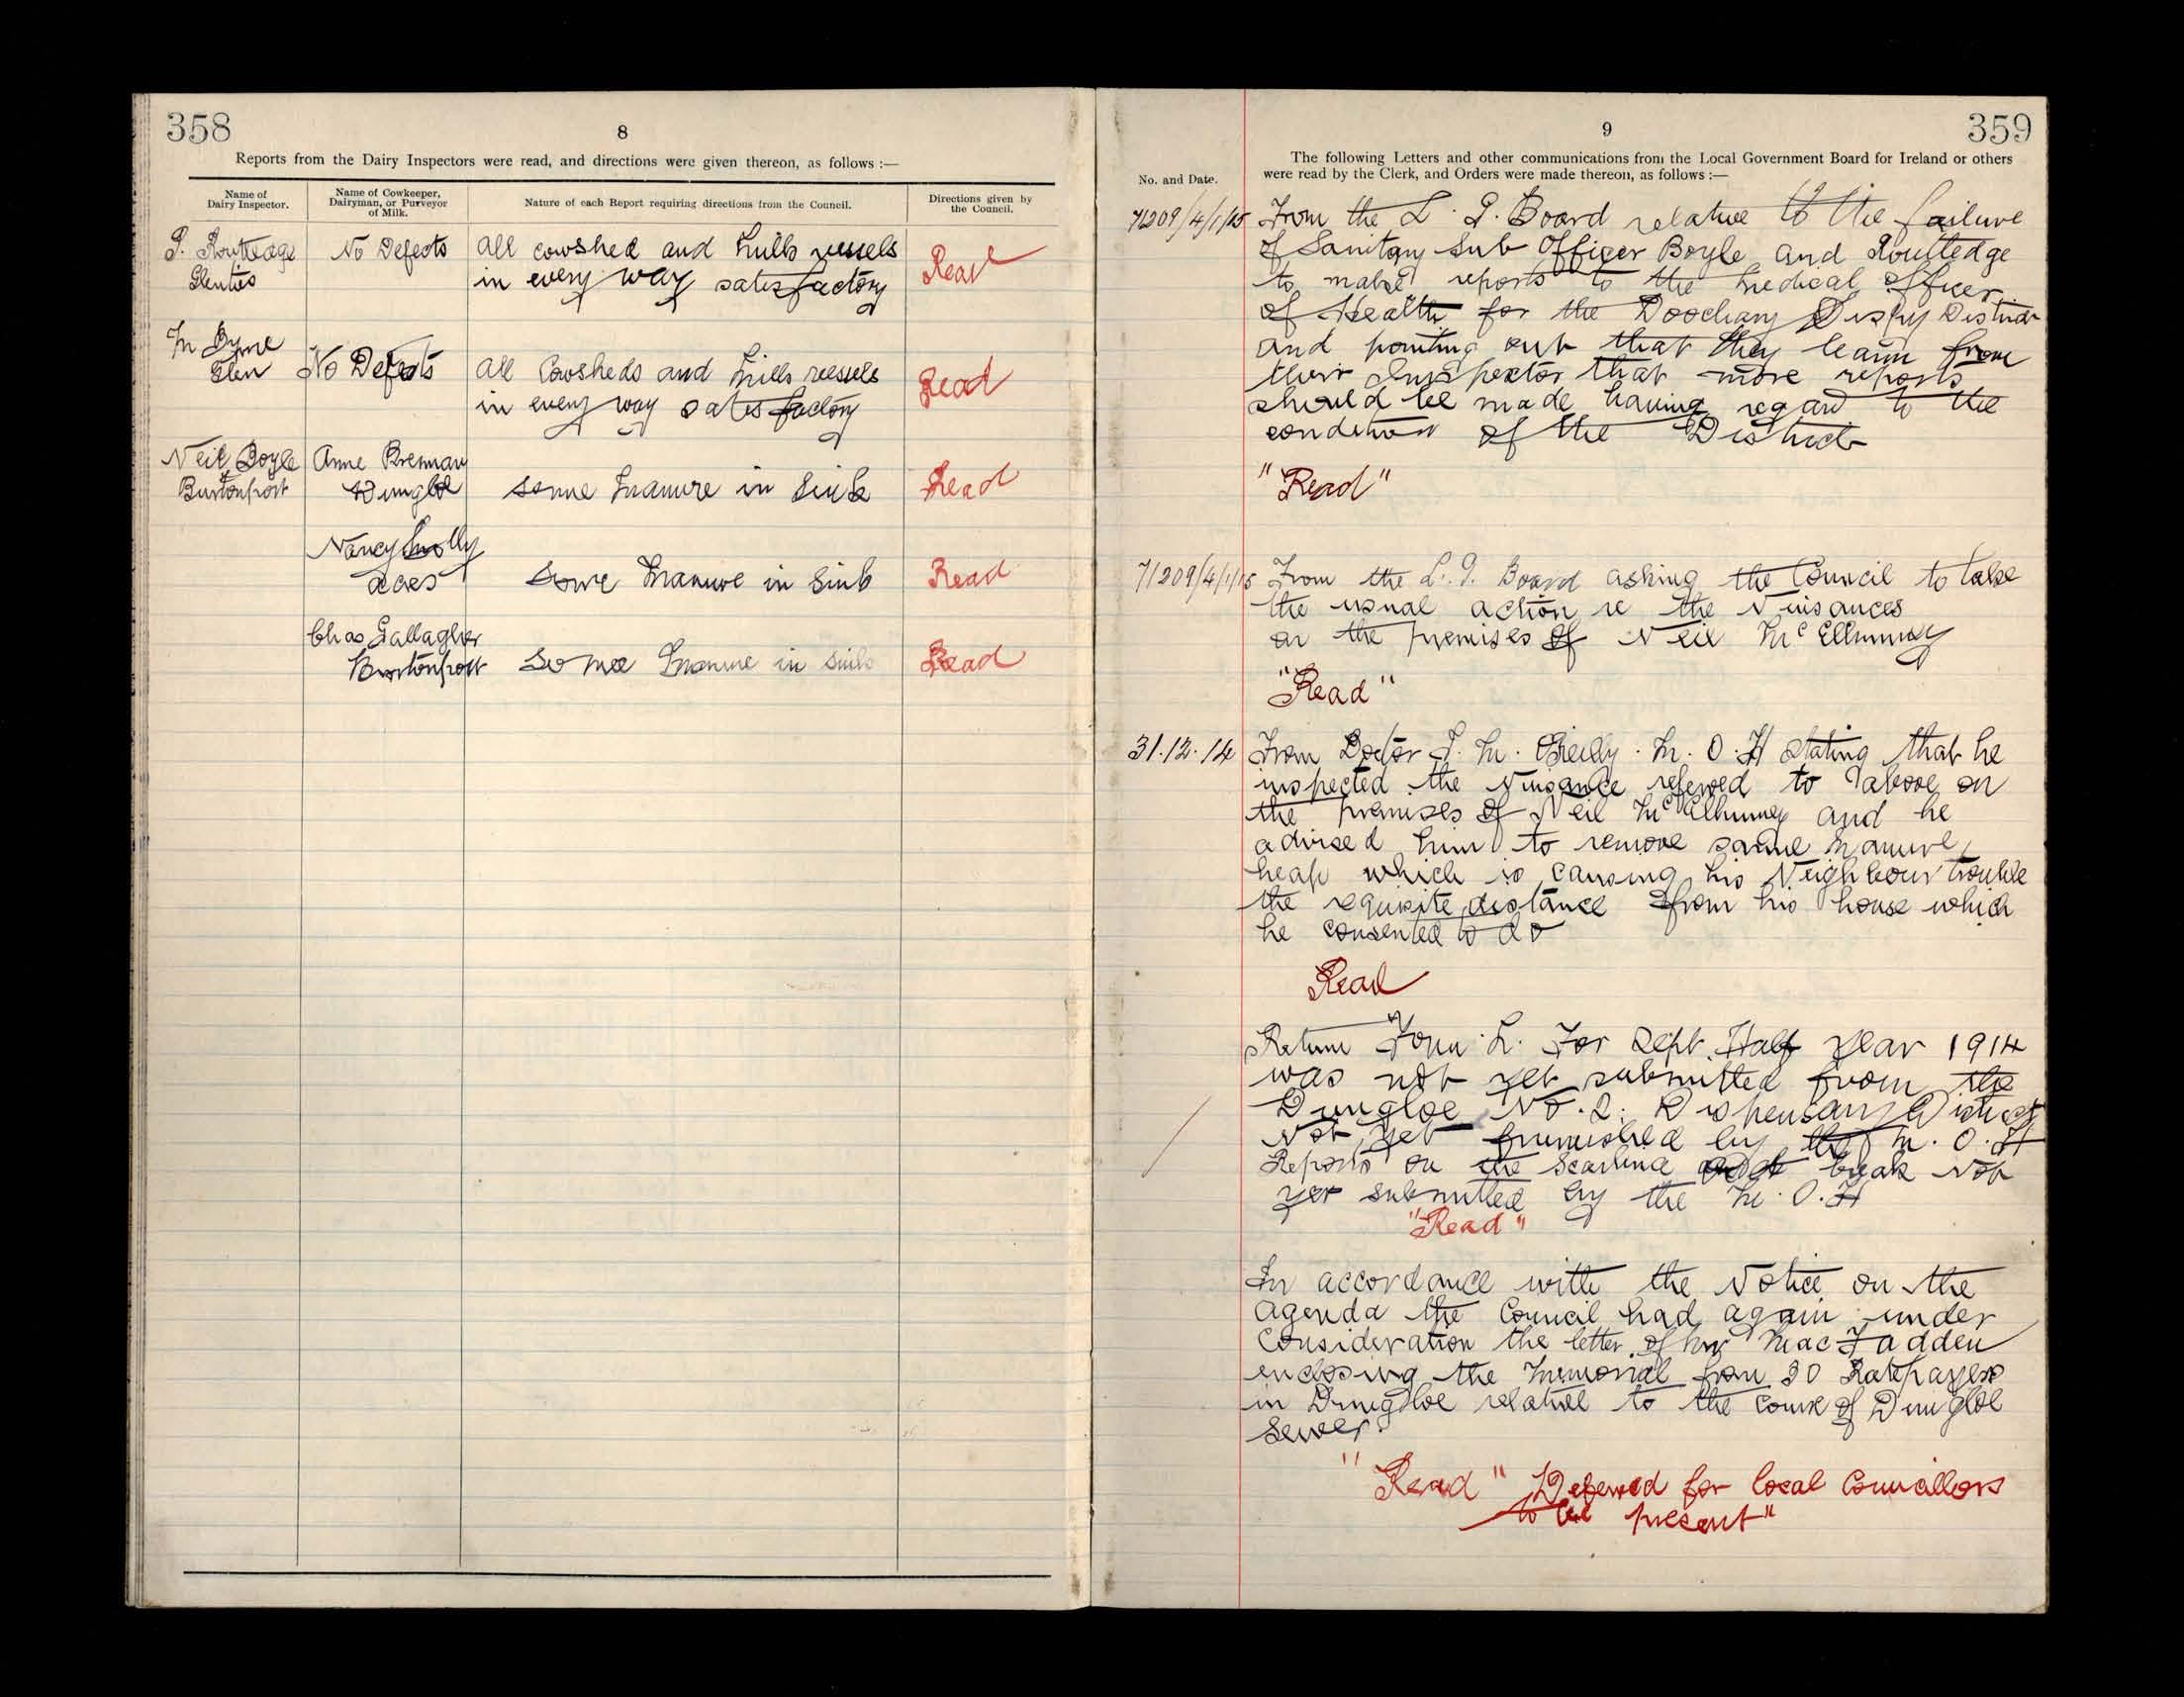 358
8
Reports from the Dairy Inspectors were read, and directions were given thereon, as follows :—
Name of Dairy Inspector.
Name of Cowkeeper, Dairyman, or Purveyor of Milk.
Nature of each Report requiring directions from the Council.
Directions given by the Council.
P. Routledge No Defects all cowshed and milk vessels Read
Glenties in every way satisfactory
M Byrne
Glen No Defects all Cowsheds and milk vessels Read
in every way satisfactory
Neil Boyle Anne Brennan
Burtonport Dungloe some manure in sink Read
Nancy
acres some manure in sink Read
Chas Gallagher
Burtonport some manure in sink Read
359
9
The following Letters and other communications from the Local Government Board for Ireland or others
No. and Date. were read by the Clerk, and Orders were made thereon, as follows :—
71209/4/1/15 From the L. G. Board relative to the failure
of Sanitary Sub Officer Boyle and Routledge
to make reports to the medical officer
of Health for the Doochary Dispy District
and pointing out that they learn from
their Inspector that more reports
should be made having regard to the
condition of the District
"Read"
71209/4/1/15 From the L. G. Board asking the Council to take
the usual action re the Nuisances
on the premises of Neil McElhinney
"Read"
31.12.14 From Doctor J. M. O'Reilly. M. O. H stating that he
inspected the Nuisance referred to above on
the premises of Neil McElhinney and he
advised him to remove same manure
heap which is causing his Neighbour trouble
the requisite distance from his house which
he consented to do
Read
Return Form L. For Sept. Half year 1914
was not yet submitted from the
Dungloe No. 2. Dispensary District
Not yet furnished by the M. O. H
Reports on the Scarlina out break not
yet submitted by the M. O. H
"Read"
In accordance with the Notice on the
agenda the Council had again under
consideration the letter of Mr MacFadden
enclosing the memorial from 30 Ratepayers
in Dungloe relative to the course of Dungloe
sewer.
"Read" "Deferred for local Councillors
to be present"